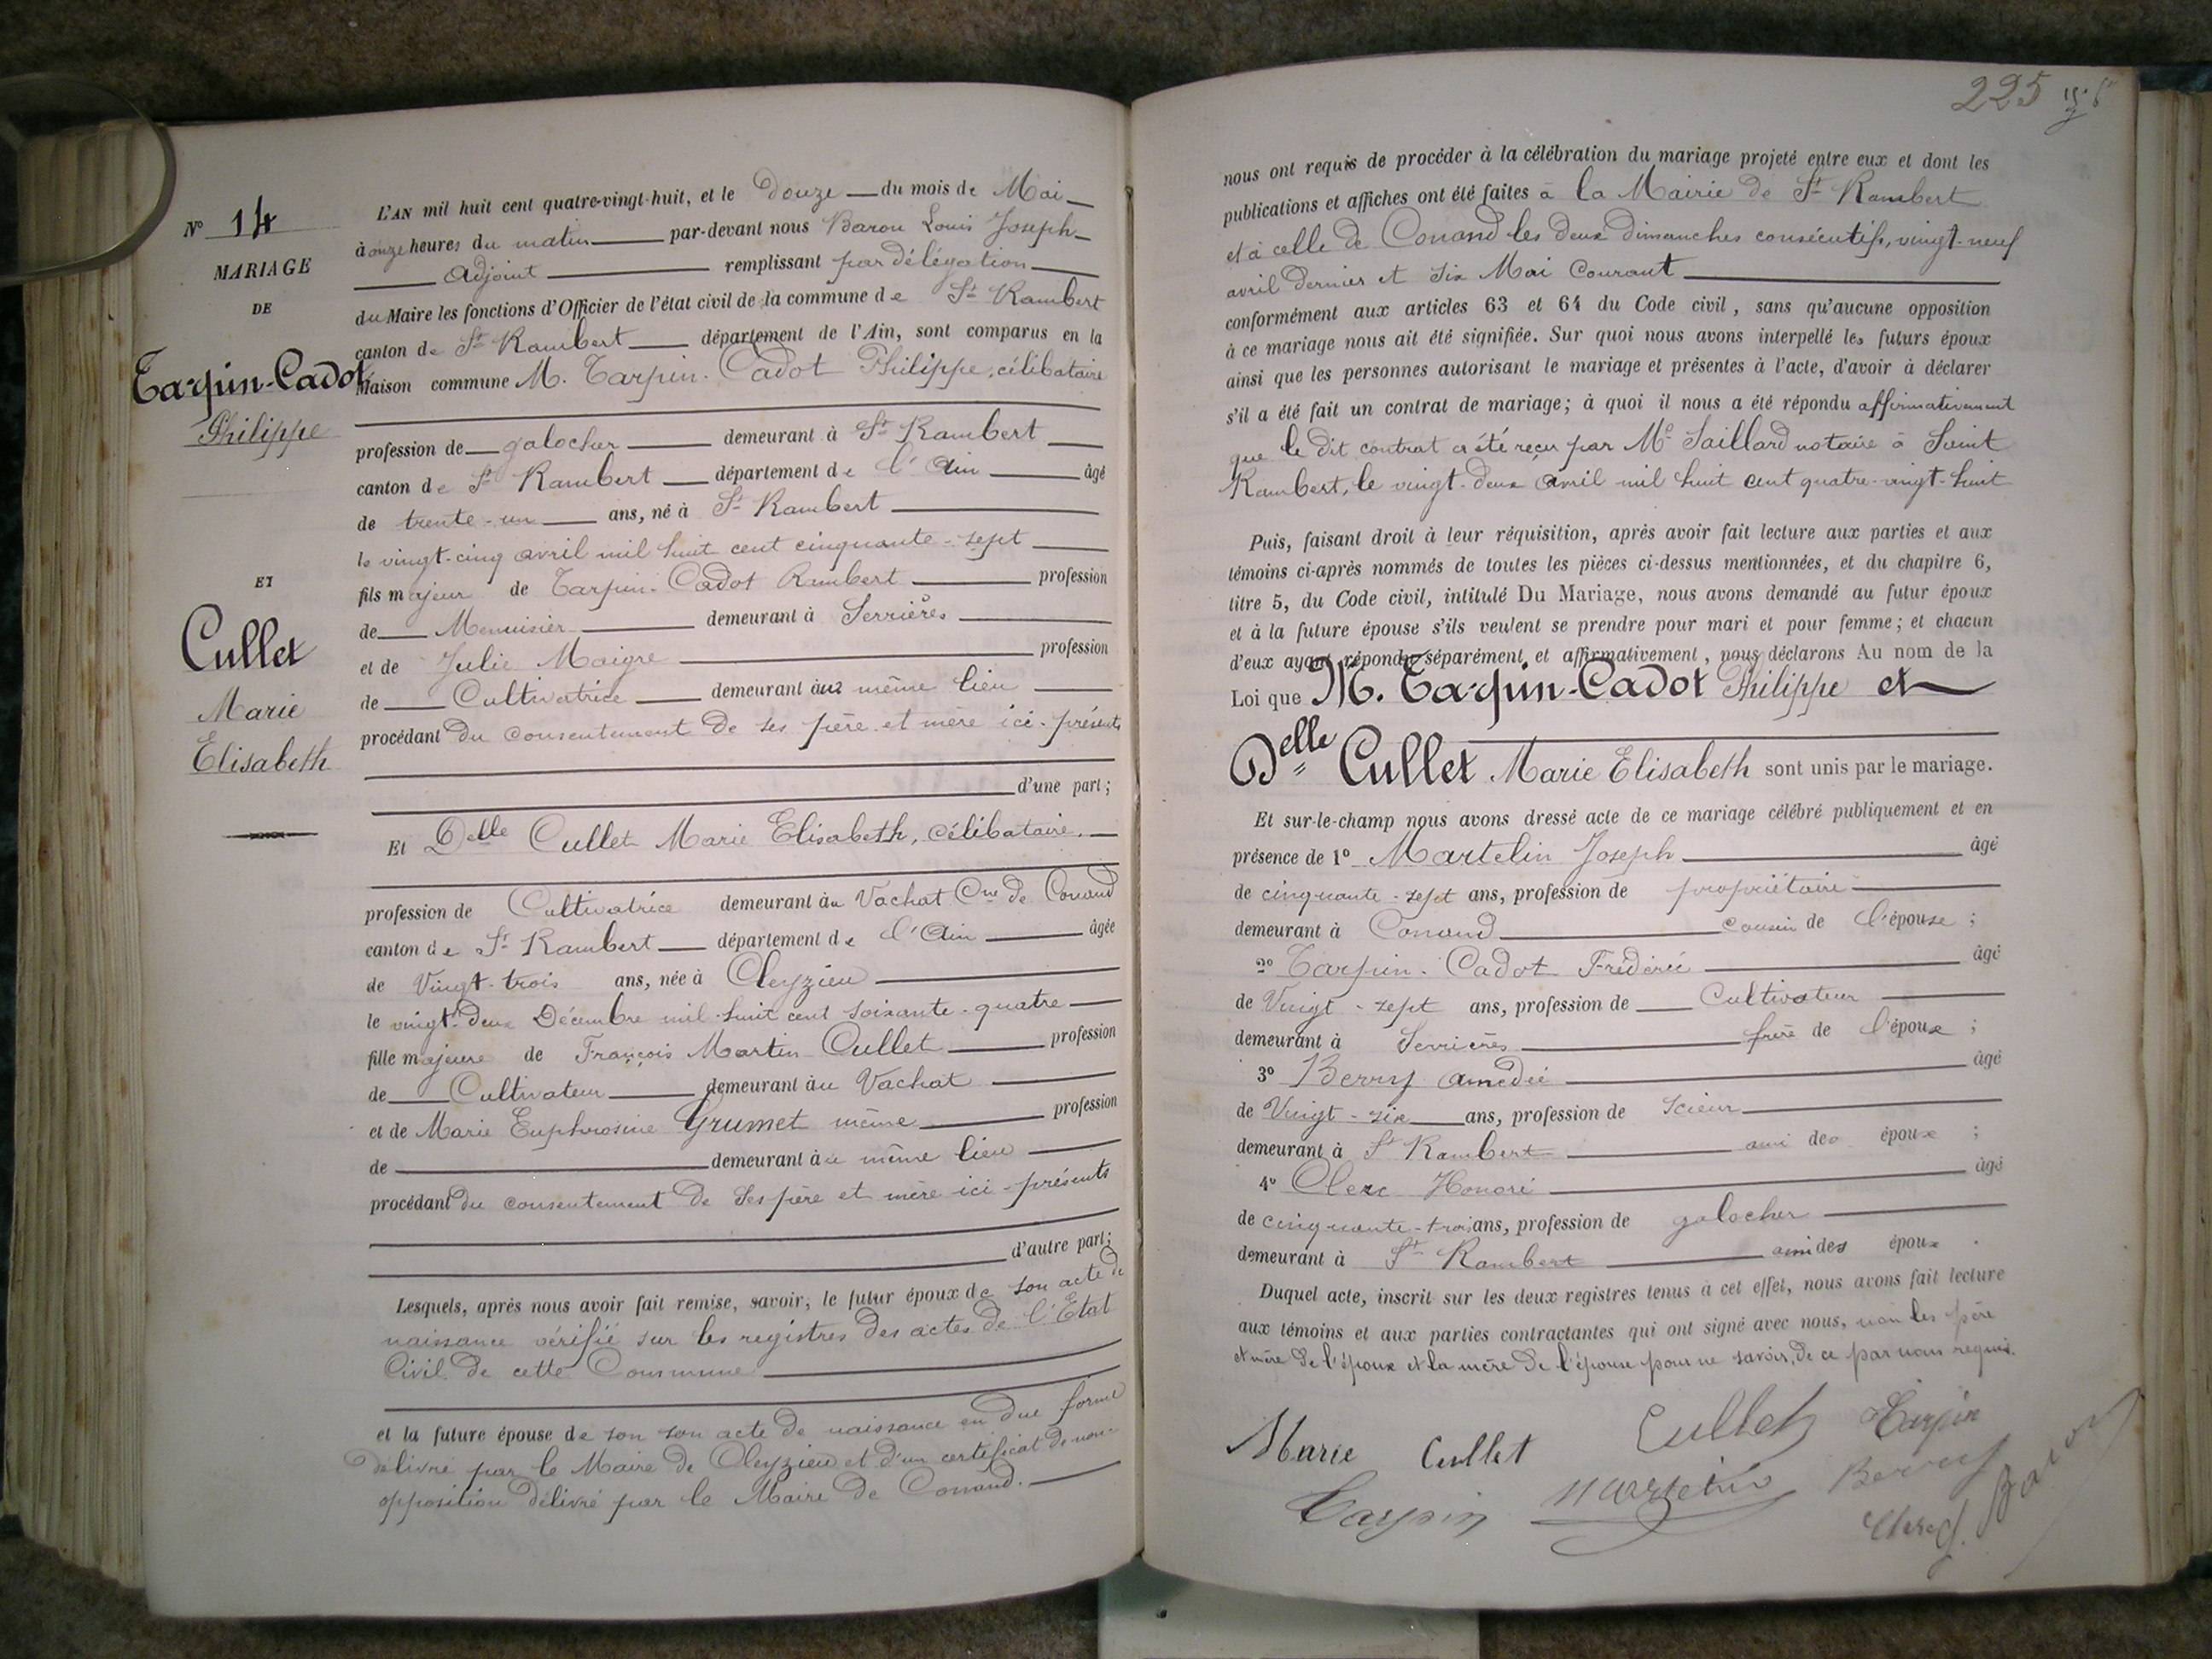 No 14
MARIAGE
DE
Tarpin-Cadot
Philippe
ET
Cullet
Marie
Elisabeth
L'AN mil huit cent quatre-vingt-huit, et le Douze du mois de Mai
à onze heures du matin par-devant nous Baron Louis Joseph
Adjoint remplissant par délégation
du Maire les fonctions d'Officier de l'état civil de la commune de St Rambert
canton de St Rambert département de l'Ain, sont comparus en la
Maison commune M. Tarpin-Cadot Philippe, célibataire
profession de galocher demeurant à St Rambert
canton de St Rambert département de l'Ain âgé
de trente-un ans, né à St Rambert
le vingt-cinq avril mil huit cent cinquante-sept
fils majeur de Tarpin-Cadot Rambert profession
de Menuisier demeurant à Serrières
et de Julie Maigre profession
de Cultivatrice demeurant au même lieu
procédant du consentement de ses père et mère ici-présents
d'une part;
Et Delle Cullet Marie Elisabeth, célibataire.
profession de Cultivatrice demeurant au Vachat Cne de Conand
canton de St Rambert département de l'Ain âgée
de Vingt-trois ans, née à Cleyzieu
le vingt-deux Décembre mil-huit cent soixante-quatre
fille majeure de François Martin Cullet profession
de Cultivateur demeurant au Vachat
et de Marie Euphrosine Grumet même profession
de demeurant au même lieu
procédant du consentement de ses père et mère ici-présents
d'autre part;
Lesquels, après nous avoir fait remise, savoir; le futur époux de son acte de
naissance vérifié sur les registres des actes de l'Etat
Civil de cette Commune
et la future épouse de son son acte de naissance en due forme
délivré par le Maire de Cleyzieu et d'un certificat de non-
opposition délivré par le Maire de Conand.
225
nous ont requis de procéder à la célébration du mariage projeté entre eux et dont les
publications et affiches ont été faites à la Mairie de St Rambert
et à celle de Conand les deux dimanches consécutifs, vingt-neuf
avril dernier et six Mai courant
conformément aux articles 63 et 64 du Code civil, sans qu'aucune opposition
à ce mariage nous ait été signifiée. Sur quoi nous avons interpellé les futurs époux
ainsi que les personnes autorisant le mariage et présentes à l'acte, d'avoir à déclarer
s'il a été fait un contrat de mariage; à quoi il nous a été répondu affirmativement
que le dit contrat a été reçu par Me Saillard notaire à Saint
Rambert, le vingt-deux avril mil huit cent quatre-vingt-huit
Puis, faisant droit à leur réquisition, après avoir fait lecture aux parties et aux
témoins ci-après nommés de toutes les pièces ci-dessus mentionnées, et du chapitre 6,
titre 5, du Code civil, intitulé Du Mariage, nous avons demandé au futur époux
et à la future épouse s'ils veulent se prendre pour mari et pour femme; et chacun
d'eux ayant répondu séparément et affirmativement, nous déclarons Au nom de la
Loi que M. Tarpin-Cadot Philippe et
Delle Cullet Marie Elisabeth sont unis par le mariage.
Et sur-le-champ nous avons dressé acte de ce mariage célébré publiquement et en
présence de 1o Martelin Joseph âgé
de cinquante-sept ans, profession de propriétaire
demeurant à Conand cousin de l'épouse;
2o Tarpin-Cadot Frédéric âgé
de Vingt-sept ans, profession de Cultivateur
demeurant à Serrières frère de l'époux;
3o Berry Amédée âgé
de Vingt-six ans, profession de scieur
demeurant à St Rambert ami des époux;
4o Clerc Honoré âgé
de cinquante-trois ans, profession de galocher
demeurant à St Rambert ami des époux.
Duquel acte, inscrit sur les deux registres tenus à cet effet, nous avons fait lecture
aux témoins et aux parties contractantes qui ont signé avec nous, non les père
et mère de l'époux et la mère de l'épouse pour ne savoir, de ce par nous requis.
Marie Cullet Cullet Tarpin
Tarpin Martelin Berry
Clerc H. Baron